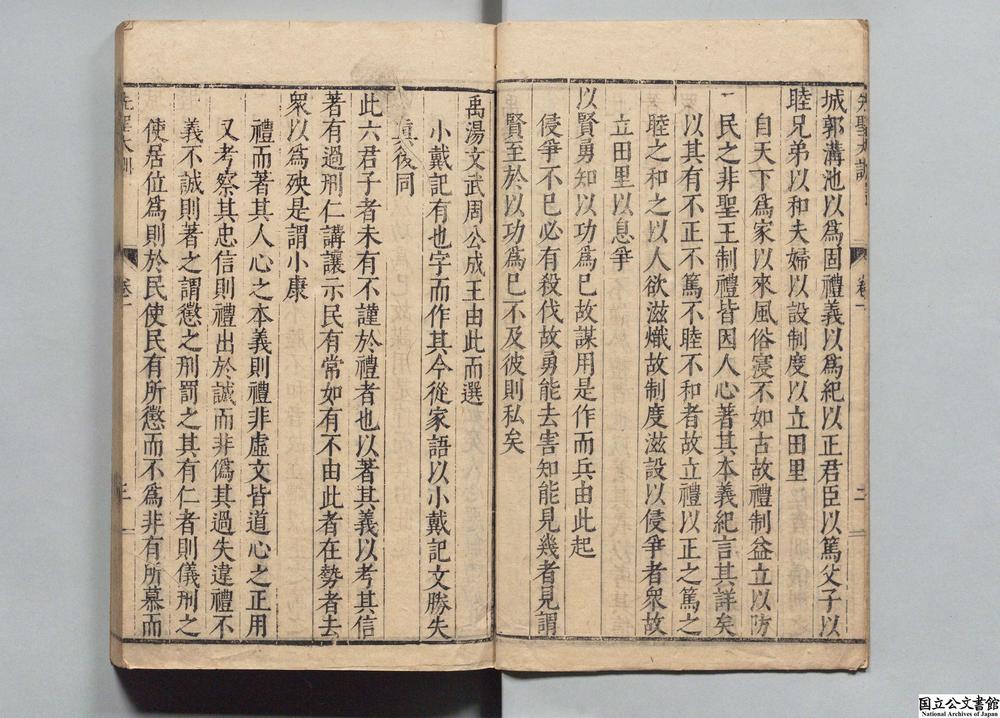 城郭溝池以為固禮義以為紀以正君臣以篤父子以
睦兄弟以和夫婦以設制度以立田里
自天下為家以來風俗寖不如古故禮制益立以防
民之非聖王制禮皆因人心著其本義紀言其詳矣
以其有不正不篤不睦不和者故立禮以正之篤之
睦之和之以人欲滋熾故制度滋設以侵爭者衆故
立田里以息爭
以賢勇知以功為已故謀用是作而兵由此起
侵爭不已必有殺伐故勇能去害知能見幾者見謂
賢至於以功為已不及彼則私矣
先聖大訓
卷一
二
禹湯文武周公成王由此而選
小戴記有也字而作其今從家語以小戴記文勝失
真後同
此六君子者未有不謹於禮者也以著其義以考其信
著有過刑仁講讓示民有常如有不由此者在勢者去
衆以為殃是謂小康
禮而著其人心之本義則禮非虛文皆道心之正用
又考察其忠信則禮出於誠而非偽其過失違禮不
義不誠則著之謂懲之刑罰之其有仁者則儀刑之
使居位為則於民使民有所懲而不為非有所慕而
先聖大訓
卷一
三
国立公文書館
National Archives of Japan